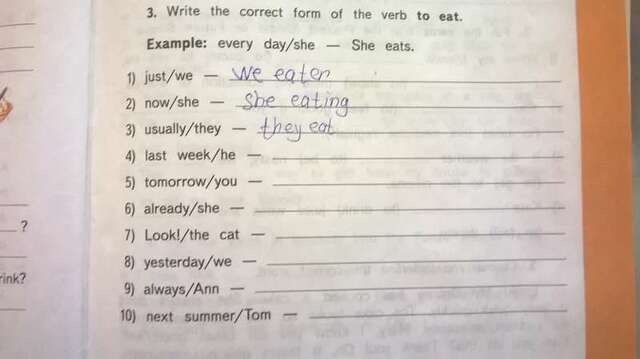 3. Write the correct form of the verb to eat.
Example: every day/she — She eats.
1) just/we — we eaten
2) now/she — she eating
3) usually/they — they eat
4) last week/he —
5) tomorrow/you —
6) already/she —
?
7) Look!/the cat —
8) yesterday/we —
rink?
9) always/Ann —
10) next summer/Tom —